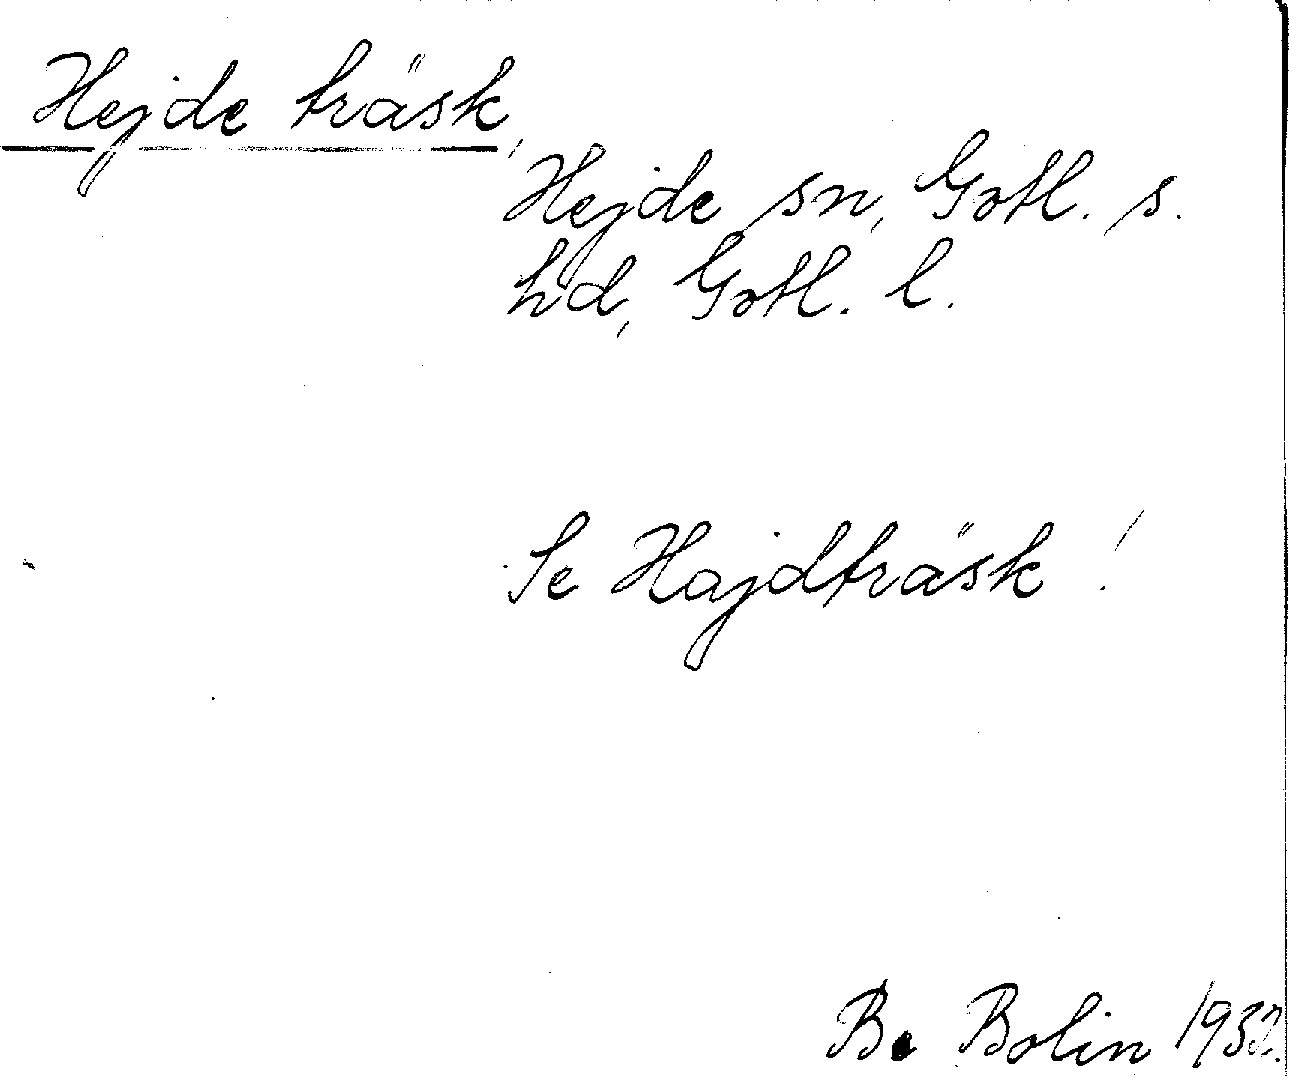 Hejde träsk,
Hejde sn, Gotl. s.
hd, Gotl. l.
Se Hajdträsk!
Bolin 1932.